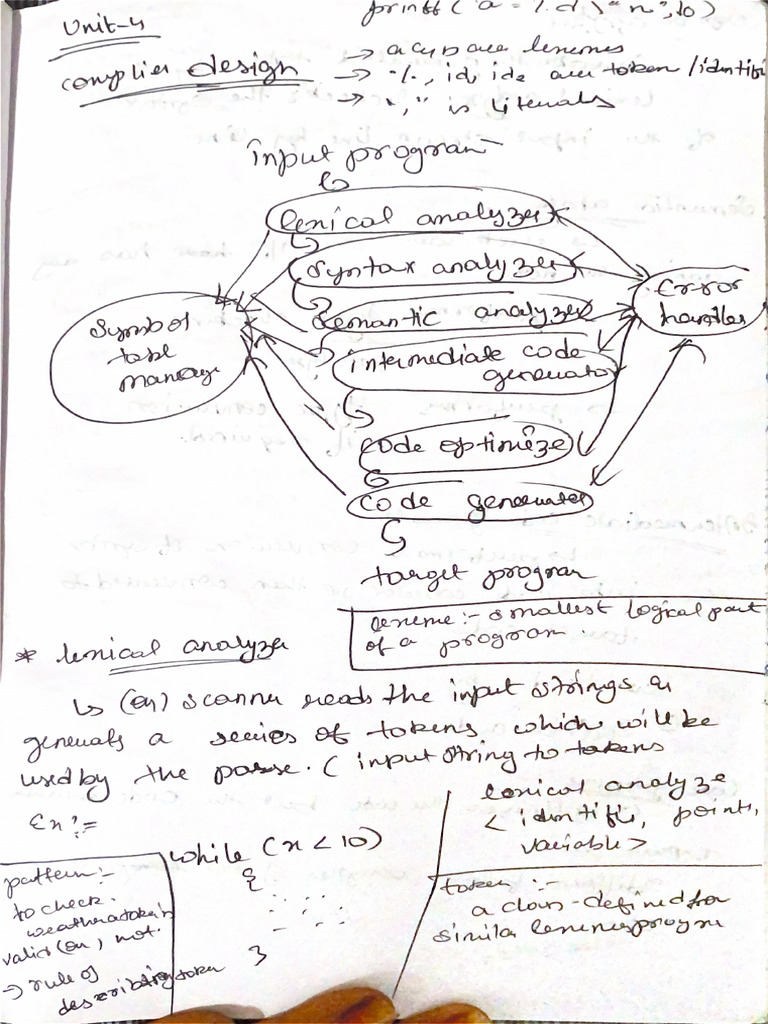 Unit-4
printf("a = %d\n",10)
complier design
→ a cypaee lexemes
→ %, id, ide are token/identifi
→ ",," is literals
input program
lexical analyzer
Syntax analyzer
Semantic analyzer
intermediate code
generator
code optimize
code generator
target program
Symbol
table
manage
Error
handler
lexeme:- smallest logical part
of a program.
* lexical analyzer
↳ (or) scanner reads the input strings &
generats a series of tokens which will be
used by the parse. (input string to tokens
Ex:=
while (x < 10)
{
}
lexical analyze
< identifie, points,
variable >
pattern:-
to check.
weather a token is
valid (or) not.
→ rule of
describting token
token:-
a class defined for
similar lexemes progrm